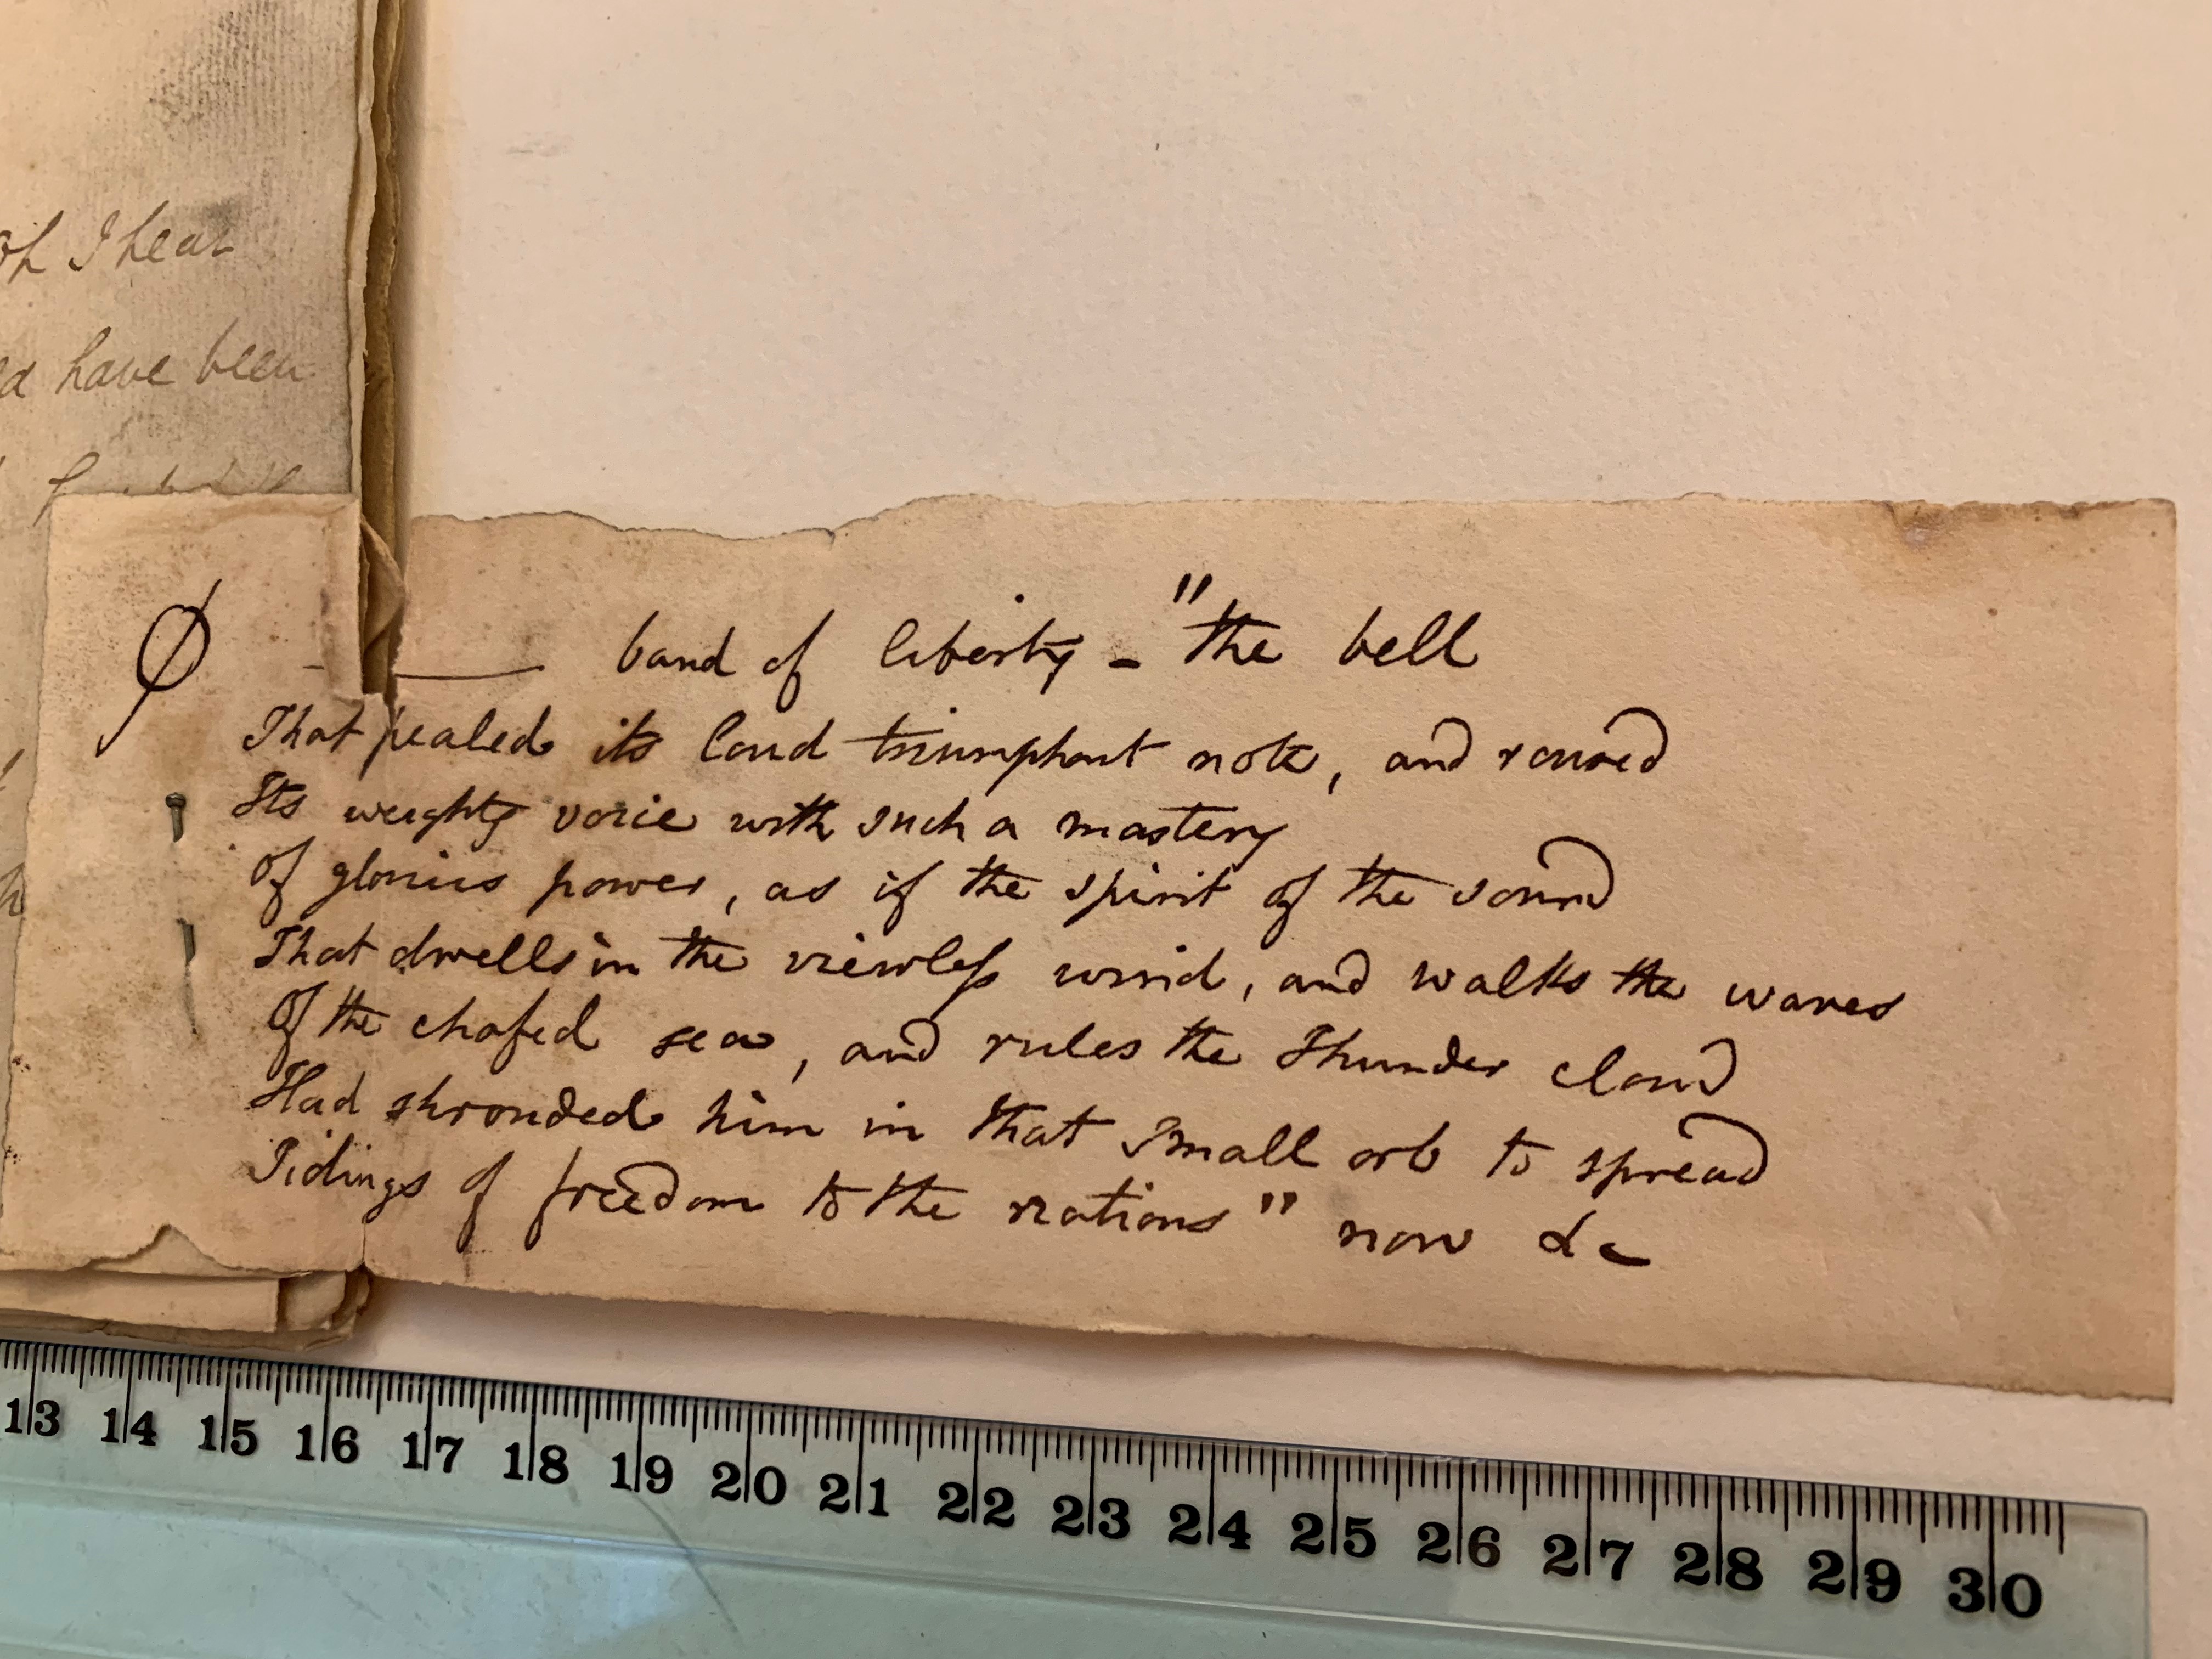 of I hear
have been
φ —— band of liberty - "the bell
That pealed its loud triumphant note, and roused
Its weighty voice with such a mastery
Of glorius power, as if the spirit of the sound
That dwells in the viewless wind, and walks the waves
Of the chafed sea, and rules the Thunder cloud
Had shrouded him in that small orb to spread
Tidings of freedom to the nations" now &c
13 14 15 16 17 18 19 20 21 22 23 24 25 26 27 28 29 30